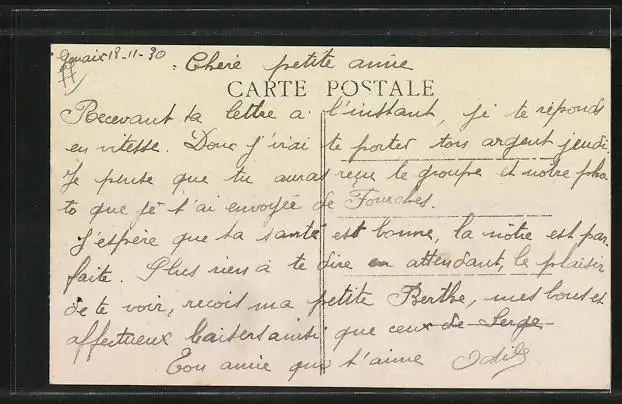 18-11-30
Chère petite amie
CARTE POSTALE
Recevant ta lettre à l'instant, je te réponds
en vitesse. Donc j'irai te porter ton argent jeudi.
Je pense que tu auras reçu le groupe et notre pho-
to que je t'ai envoyée de Fourches.
J'espère que ta santé est bonne, la nôtre est par-
faite. Plus rien à te dire en attendant, le plaisir
de te voir, reçois ma petite Berthe, mes bons et
affectueux baisers ainsi que ceux de Serge
Ton amie qui t'aime Odile